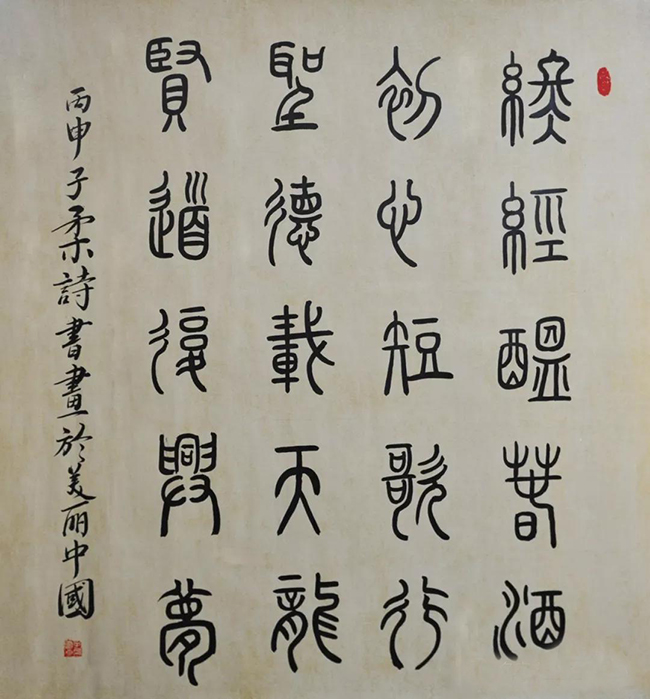 經醞春酒
初心短歌行
聖德載天龍
賢道復興夢
丙申子柔詩書畫於美丽中國